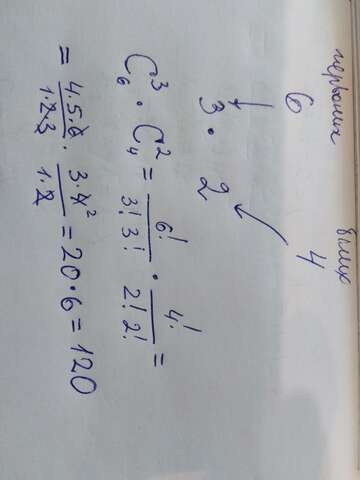 червоних білих
6 4
3 · 2
C₆³ · C₄² = 6!/(3! 3!) · 4!/(2! 2!) =
= (4·5·6)/(1·2·3) · (3·4 2)/(1·2) = 20·6 = 120